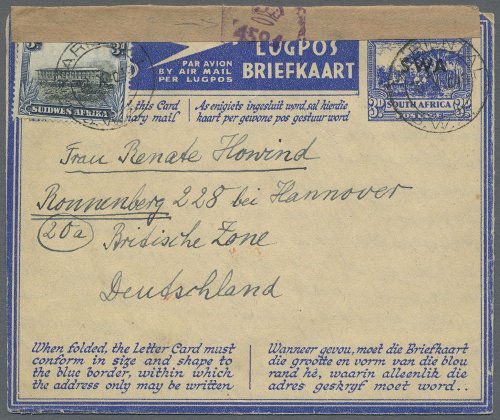 4504
LUGPOS
PAR AVION
BY AIR MAIL
PER LUGPOS
BRIEFKAART
3d
SUIDWES AFRIKA
SWA
SOUTH AFRICA
POSTAGE
this Card
mail
As enigiets ingesluit word, sal hierdie
kaart per gewone pos gestuur word
Frau Renate Howind
Ronnenberg 228 bei Hannover
20a
Britische Zone
Deutschland
When folded, the Letter Card must
conform in size and shape to
the blue border, within which
the address only may be written
Wanneer gevou, moet die Briefkaart
die grootte en vorm van die blou
rand hê, waarin alleenlik die
adres geskryf moet word..